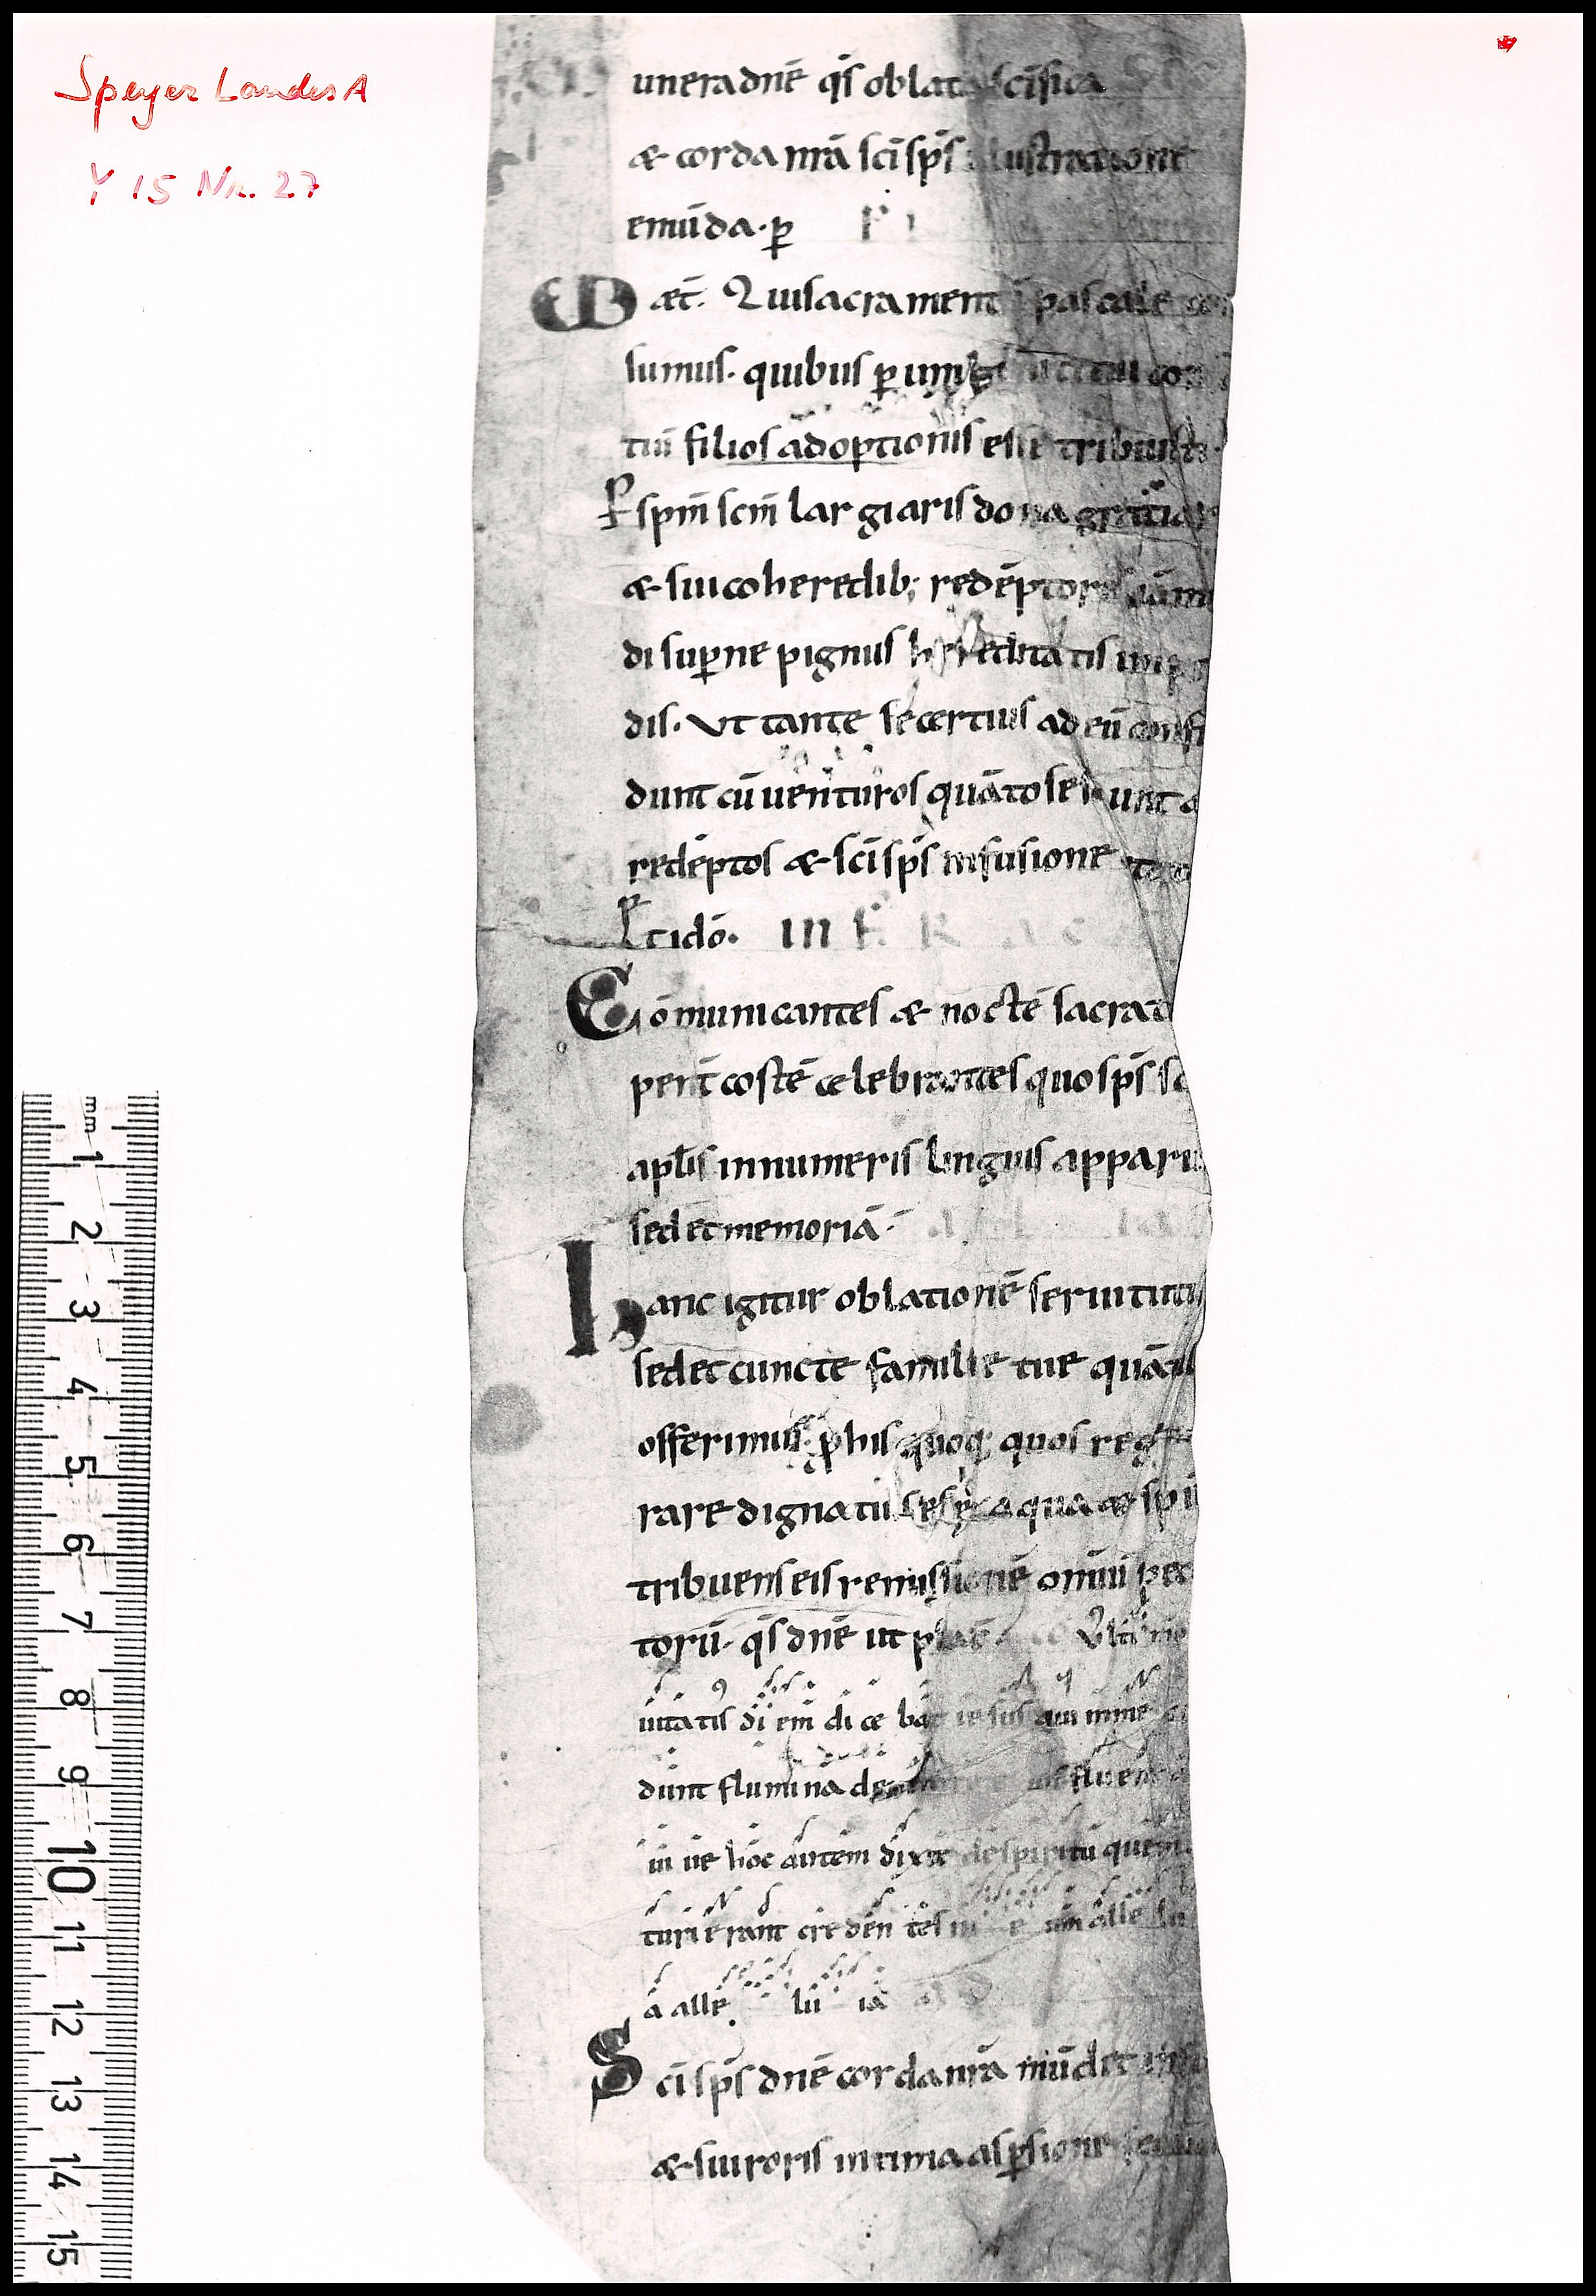 Speyer Landes A
Y 15 Nr. 27
unera dnē qs̄ oblata scīfica
& corda nr̄a scī sp̄s illustratione
emūda · p̄
æt̄. Qui sacrament pascale
sumus. quibus p̄ unig
tuū filios adoptionis esse tribuisti
P spm̄ scm̄ largiaris dona gratiar
& sui coheredib; redēptoris
di sup̄ne pignus hereditatis imp
dis. Ut tante se certius ad eū confi
dunt cū venturos quāto se
redēptos & scī sp̄s infusione
idō. IN FR AC
Cōmunicantes & noctē sacrat
pent̄costē celebrantes quo sp̄s sc
aplīs innumeris linguis apparu
sed et memoriā.
Hanc igitur oblationē seruitutis
sed et cuncte familie tue quā
offerimus. p̄ his quoq; quos reg
rare dignatus es ex aqua & sp̄u
tribuens eis remissionē omniū pec
torū. qs̄ dnē ut
uitatis diem dicebat iesus qui in me
dunt flumina de fluent
uiue hoc autem dixit de spiritu quem
turi erant credentes in e um alle lu
a alle lu ia
Scī sp̄s dnē corda nr̄a mūdet
& sui roris intima asp̄sione
mm
1
2
3
4
5
6
7
8
9
10
11
12
13
14
15